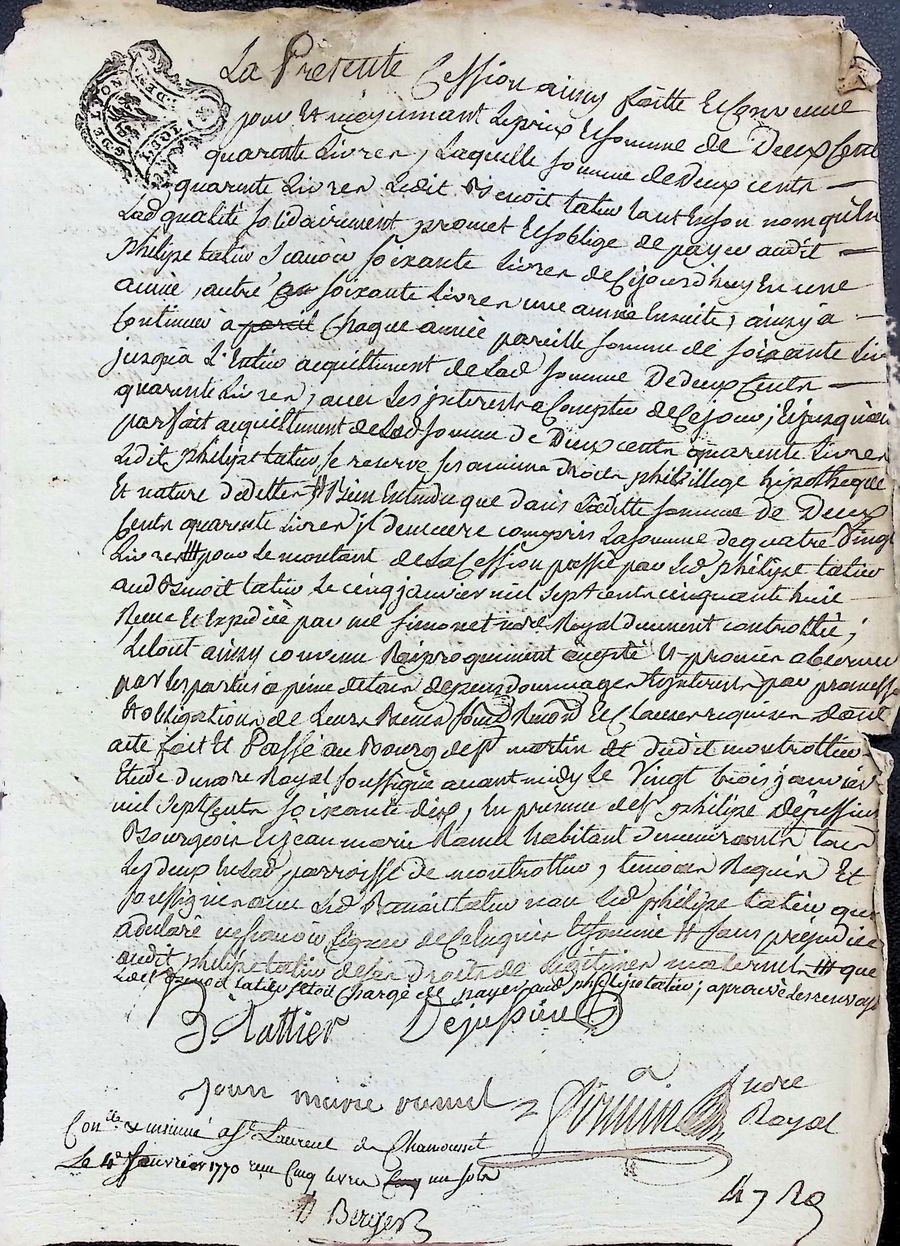 La Presente Cession ainsy faitte et Convenue
pour et moyennant le prix et somme de Deux Cent
quarente Livres, Laquelle somme de deux cents
quarente Livres Ledit Benoit tatiw tant en son nom qu'En
Lad qualité solidairement promet et s'oblige de payer audit
philipe tatiw scavoir soixante Livres de Cejourd'huy En une
année, autre soixante Livres une année Ensuite, ainsy a
Continuer à pareil Chaque année pareille somme de soixante Liv
jusqu'a L'Entier acquittement de Lad somme De deux Cents
quarente Livres, avec Les interests a Compter de Ce jour, Et jusqu'au
parfait acquittement de Lad somme de Deux cents quarente Livres
Ledit philipe tatiw se reserve ses droits privillege hipotheque
Et nature de dettes # Bien Entendu que dans Laditte somme de Deux
Cents quarente Livres il demeure compris La somme de quatre Vingt
Livres # pour Le montant de La Cession passée par Led philipe tatiw
aud Benoit tatiw Le cinq janvier mil sept cents cinquante huit
Receue Et Expediée par me simonet nore Royal duement controllée;
Le tout ainsy convenu Reciproquement accepté Et promis observer
par les parties a peine de tous depens dommages Interests par promesse
Et obligations de Leurs Biens Et Clauses requises dont
acte fait Et Passé au Bourg de st martin de montrottier
Etude du nore Royal soussigné avant midy Le Vingt trois janvier
mil sept Cents soixante dix, En presence de sr philipe Dejussieu
Bourgeois Et jean marie Ramel habitant demeurants tous
Les deux En Lad parroisse de montrottier, temoins Requis Et
soussignes avec Led Benoit tatiw non Led philipe tatiw qui
a declaré ne scavoir signer de Ce Enquis Et sommé # sans prejudice
audit philipe tatiw de ses droits de Legitimes maternels # que
Ledit Benoit tatiw s'etoit chargé de payer aud philipe tatiw; aprouvé Les renvoys
B. tattier Dejussieu
jean marie ramel nore
Royal
Conlle & insinué a St Laurent de Chamousset
Le 4e fevrier 1770 reçu Cinq livres un sols
Berger